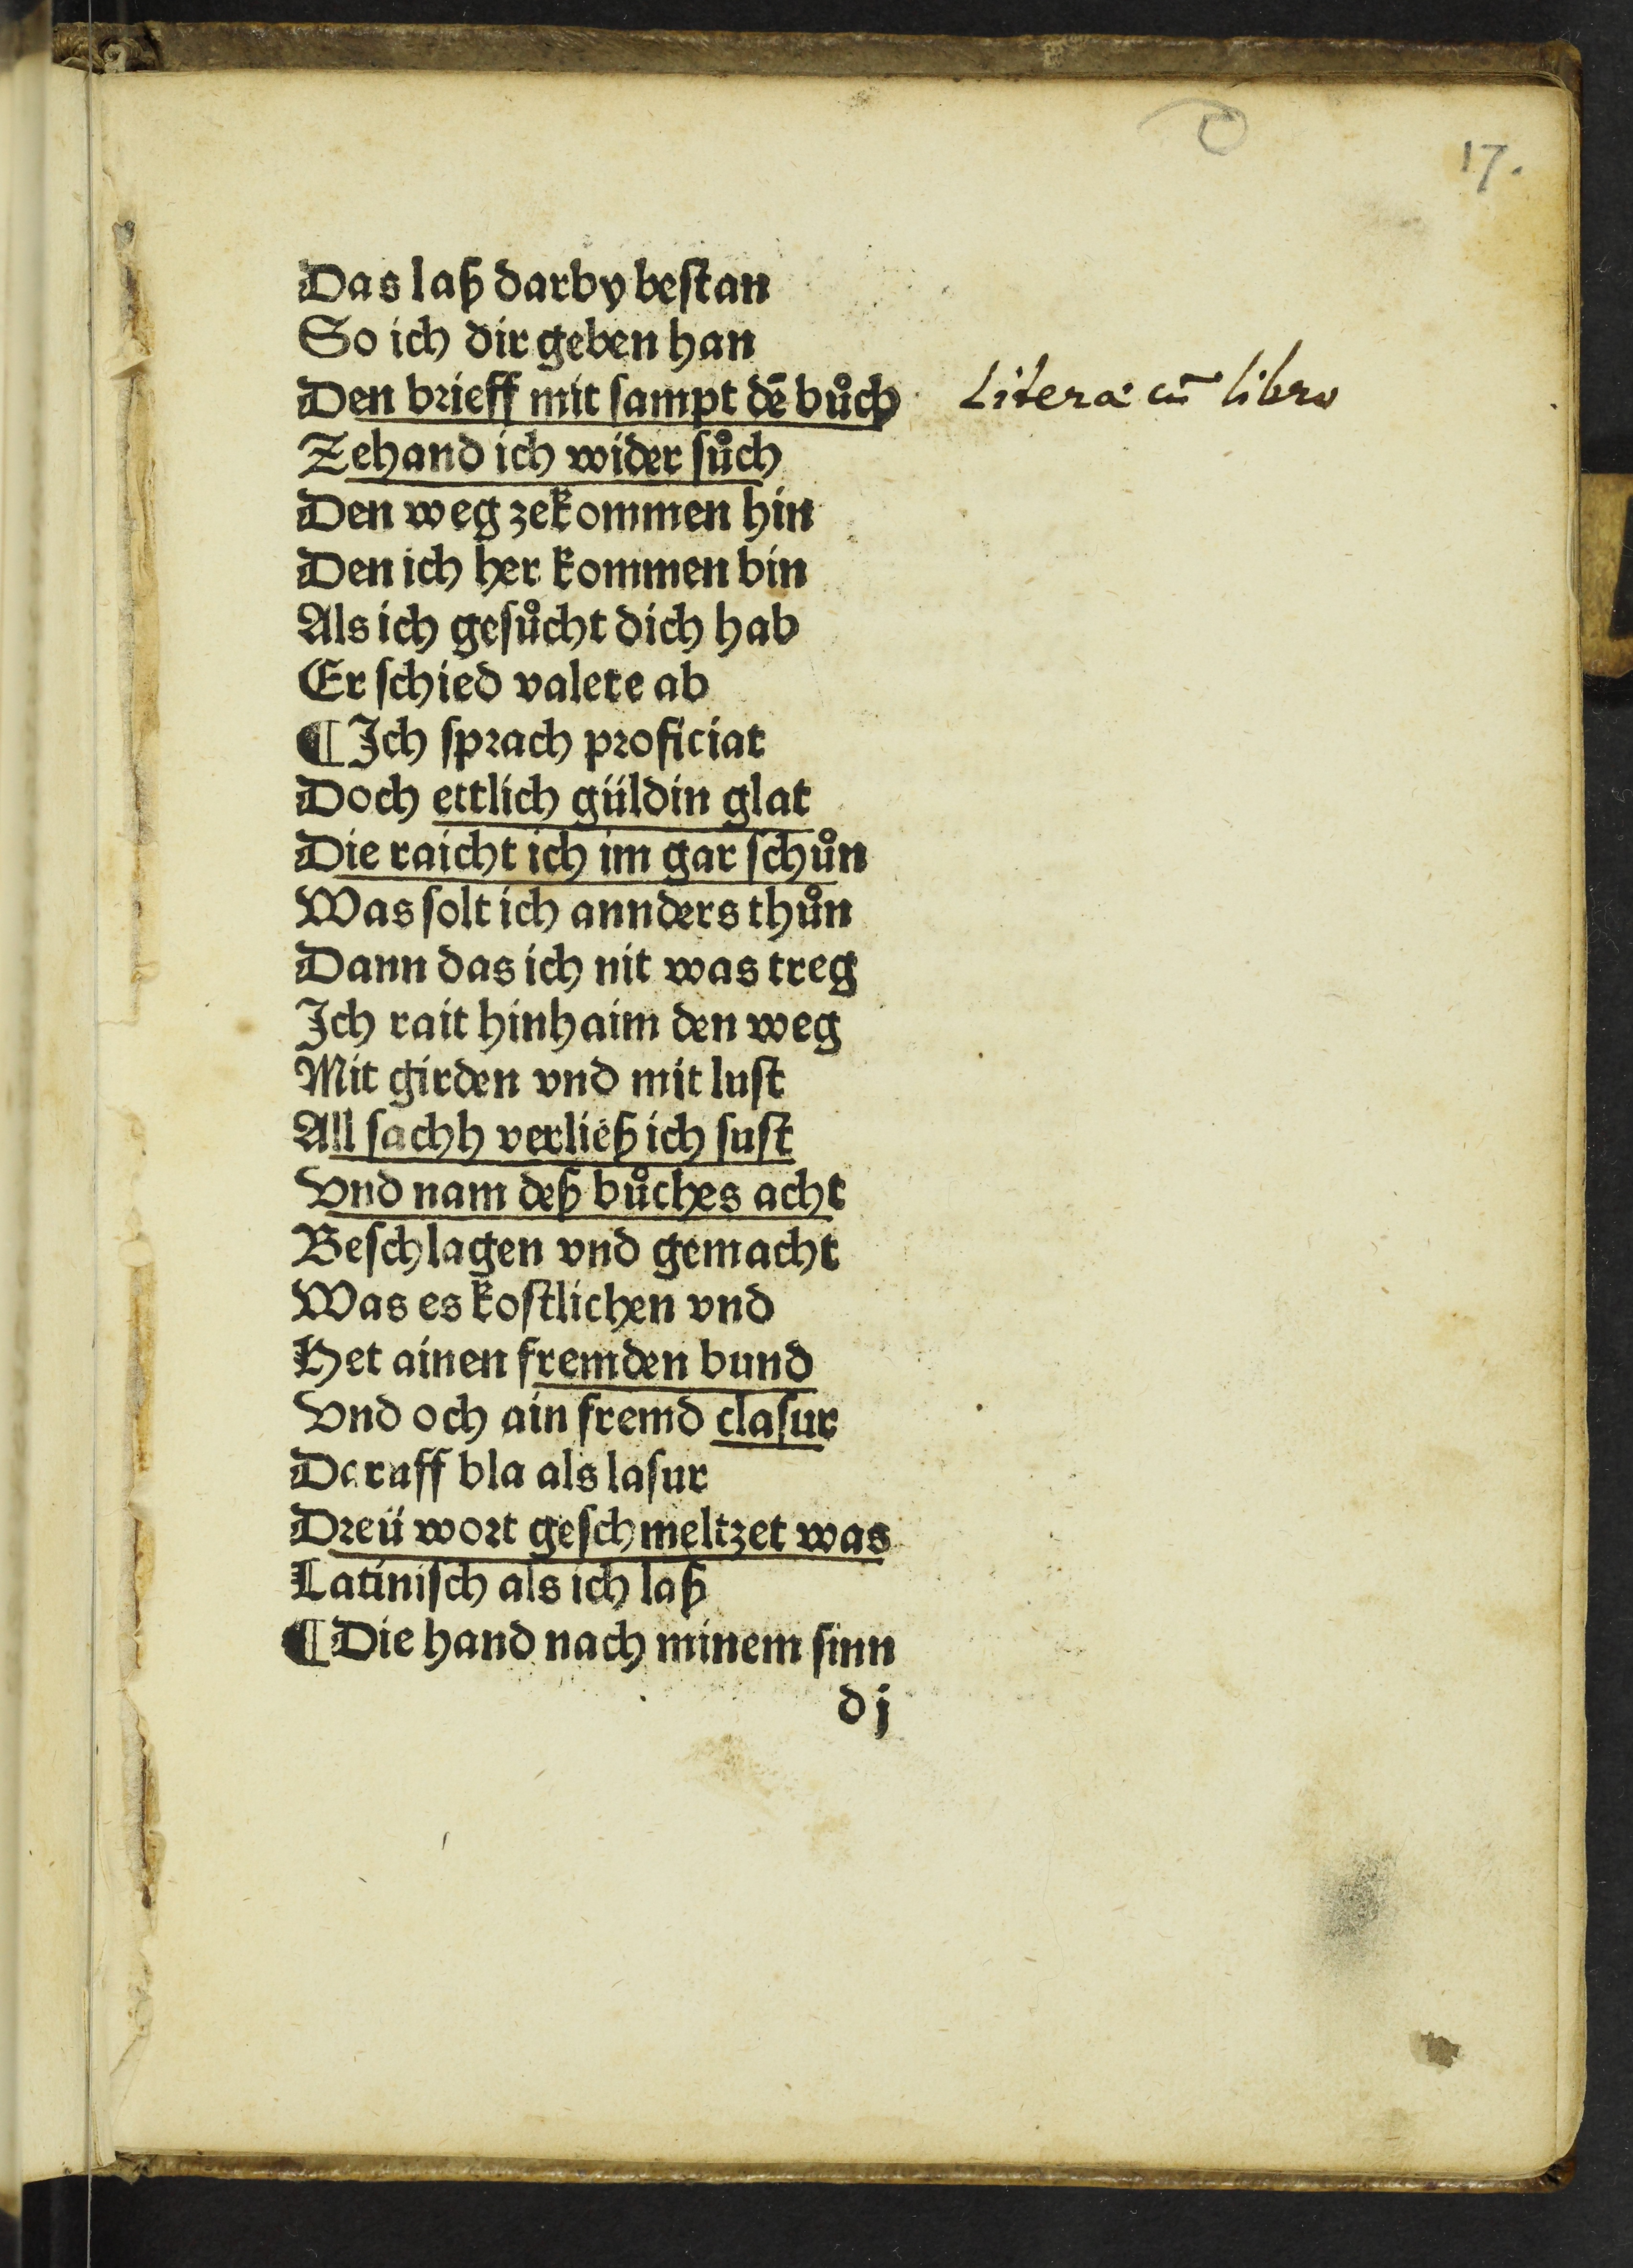 17.
Das laß darby bestan
So ich dir geben han
Den brieff mit sampt dē bůch
Literæ cū libro
Zehand ich wider sůch
Den weg zekommen hin
Den ich her kommen bin
Als ich gesůcht dich hab
Er schied valete ab
¶ Ich sprach proficiat
Doch ettlich güldin glat
Die raicht ich im gar schůn
Was solt ich annders thůn
Dann das ich nit was treg
Ich rait hinhaim den weg
Mit girden vnd mit lust
All sachh verließ ich sust
Vnd nam deß bůches acht
Beschlagen vnd gemacht
Was es kostlichen vnd
Het ainen fremden bund
Vnd och ain fremd clasur
Daruff bla als lasur
Dreü wort geschmeltzet was
Latinisch als ich laß
¶ Die hand nach minem sinn
d j